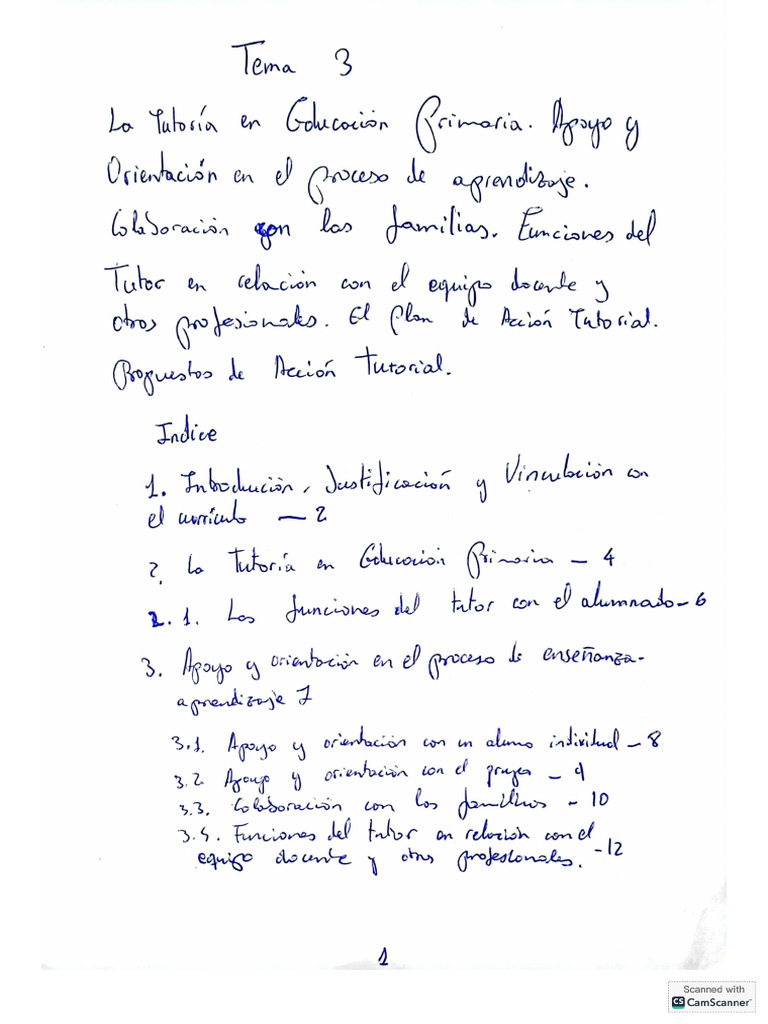 Tema 3
La Tutoría en Educación Primaria. Apoyo y
Orientación en el proceso de aprendizaje.
Colaboración con las familias. Funciones del
Tutor en relación con el equipo docente y
otros profesionales. El Plan de Acción Tutorial.
Propuestas de Acción Tutorial.
Indice
1. Introducción, Justificación y Vinculación con
el currículo — 2
2. La Tutoría en Educación Primaria – 4
2.1. Las funciones del tutor con el alumnado – 6
3. Apoyo y orientación en el proceso de enseñanza-
aprendizaje 7
3.1. Apoyo y orientación con un alumno individual – 8
3.2. Apoyo y orientación con el – 9
3.3. Colaboración con las familias – 10
3.4. Funciones del tutor en relación con el
equipo docente y otros profesionales. – 12
1
Scanned with
CS CamScanner